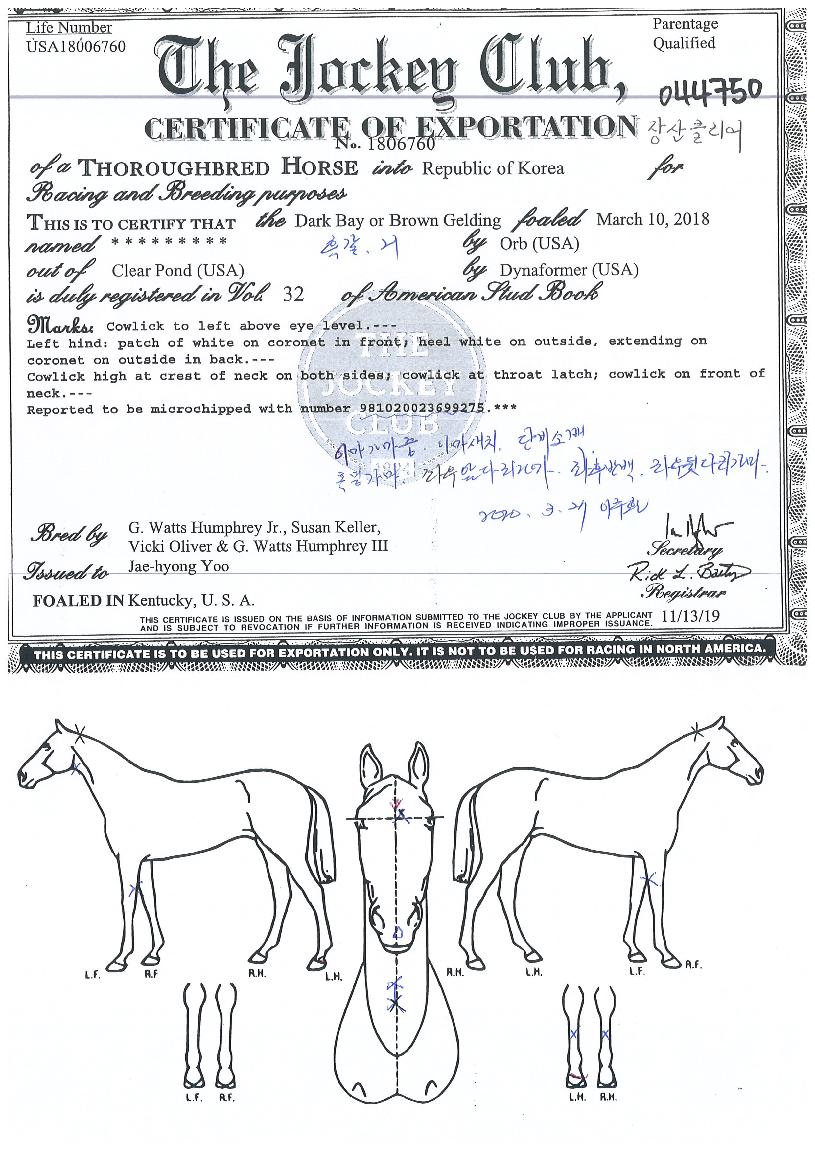 Life Number
USA18006760
Parentage
Qualified
The Jockey Club,
044750
CERTIFICATE OF EXPORTATION
장산클리어
No. 1806760
of a THOROUGHBRED HORSE into Republic of Korea for
Racing and Breeding purposes
THIS IS TO CERTIFY THAT the Dark Bay or Brown Gelding foaled March 10, 2018
named * * * * * * * * * 흑갈. 거 by Orb (USA)
out of Clear Pond (USA) by Dynaformer (USA)
is duly registered in Vol. 32 of American Stud Book
Marks: Cowlick to left above eye level.---
Left hind: patch of white on coronet in front; heel white on outside, extending on
coronet on outside in back.---
Cowlick high at crest of neck on both sides; cowlick at throat latch; cowlick on front of
neck.---
Reported to be microchipped with number 981020023699275.***
THE
JOCKEY
CLUB
1894
이마가마
이마새치.
목필가마. 좌우앞다리가마. 좌후반백.
2020. 3. 27
Bred by G. Watts Humphrey Jr., Susan Keller,
Vicki Oliver & G. Watts Humphrey III
Issued to Jae-hyong Yoo
Secretary
Rick L. Bailey
Registrar
FOALED IN Kentucky, U. S. A.
THIS CERTIFICATE IS ISSUED ON THE BASIS OF INFORMATION SUBMITTED TO THE JOCKEY CLUB BY THE APPLICANT
AND IS SUBJECT TO REVOCATION IF FURTHER INFORMATION IS RECEIVED INDICATING IMPROPER ISSUANCE.
11/13/19
THIS CERTIFICATE IS TO BE USED FOR EXPORTATION ONLY. IT IS NOT TO BE USED FOR RACING IN NORTH AMERICA.
L.F. R.F R.H. L.H. R.H. L.H. L.F. R.F.
L.F. R.F. L.H. R.H.